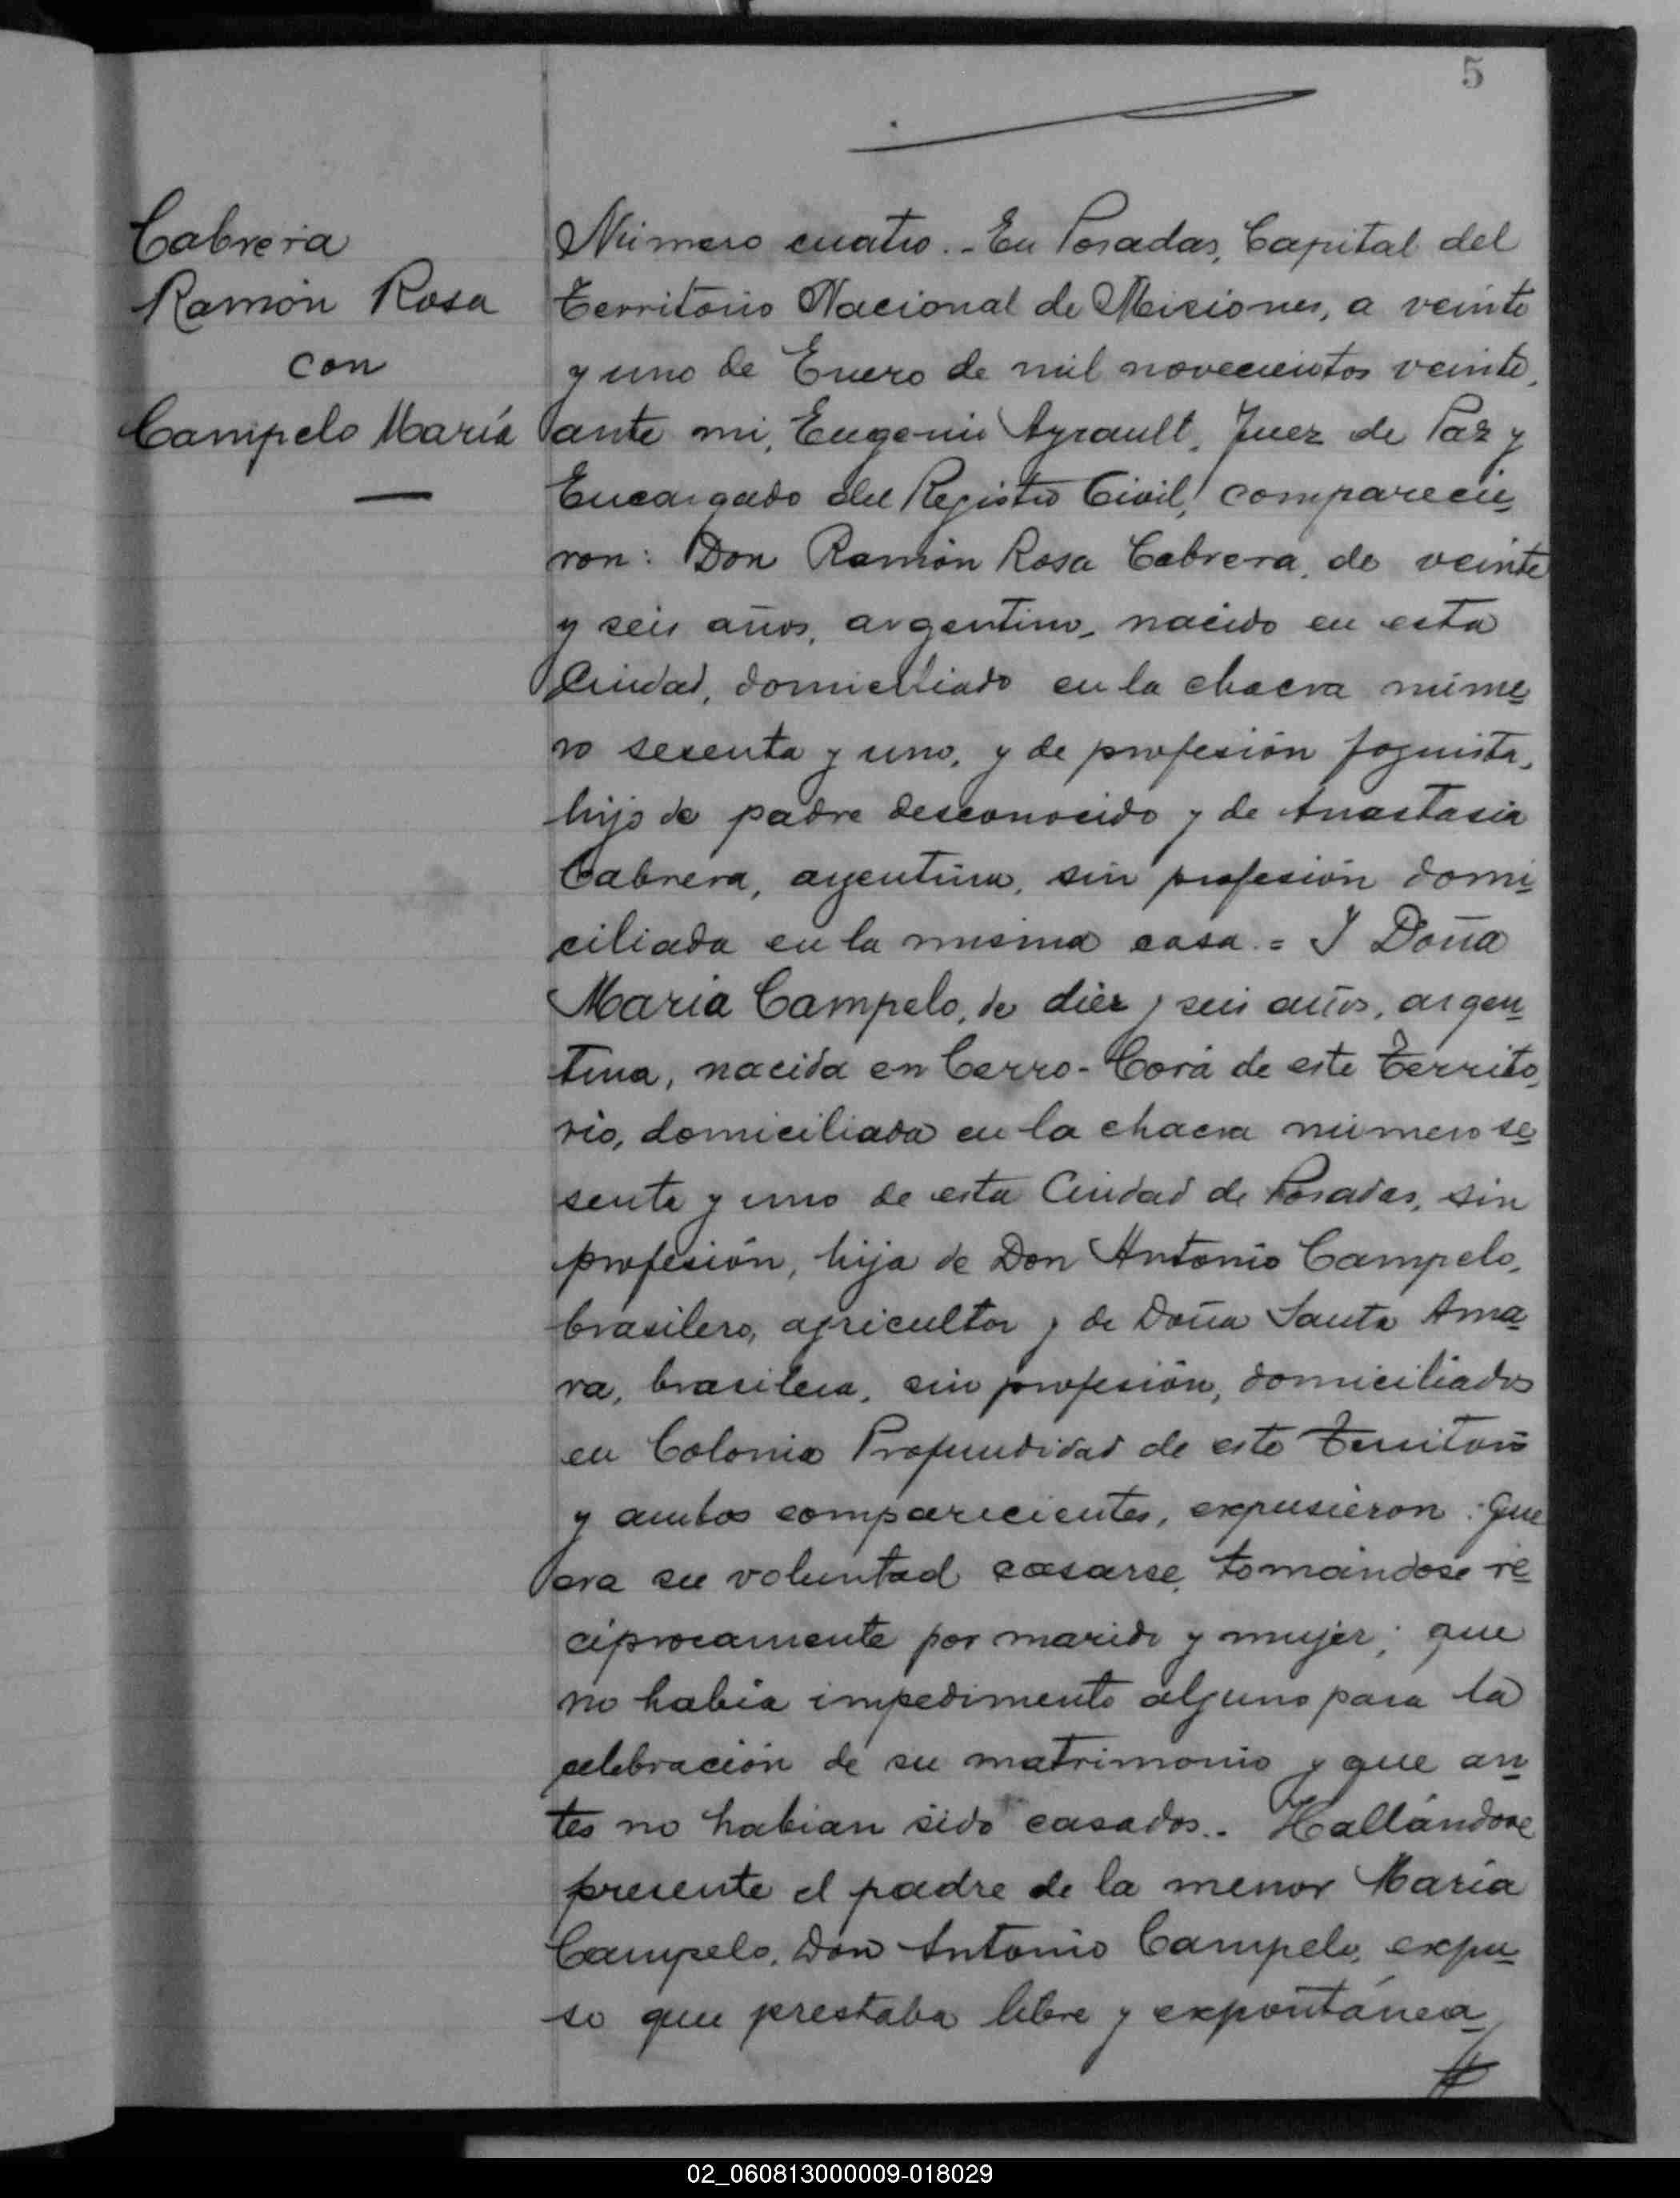 5
Cabrera
Ramón Rosa
con
Campelo María
Número cuatro.- En Posadas, Capital del
Territorio Nacional de Misiones, a veinte
y uno de Enero de mil novecientos veinte,
ante mi, Eugenio Ayrault, Juez de Paz y
Encargado del Registro Civil, comparecie
ron: Don Ramón Rosa Cabrera, de veinte
y seis años, argentino, nacido en esta
Ciudad, domiciliado en la chacra núme
ro sesenta y uno, y de profesión foguista,
hijo de padre desconocido y de Anastasia
Cabrera, argentina, sin profesión domi
ciliada en la misma casa.= Y Doña
María Campelo, de diez y seis años, argen
tina, nacida en Cerro-Corá de este Territo
rio, domiciliada en la chacra número se
senta y uno de esta Ciudad de Posadas, sin
profesión, hija de Don Antonio Campelo,
brasilero, agricultor y de Doña Santa Ama
ra, brasilera, sin profesión, domiciliados
en Colonia Profundidad de este Territorio
y ambos comparecientes, expusieron: Que
era su voluntad casarse, tomándose re
ciprocamente por marido y mujer; que
no había impedimento alguno para la
celebración de su matrimonio y que an
tes no habian sido casados.- Hallándose
presente el padre de la menor María
Campelo, Don Antonio Campelo, expu
so que prestaba libre y expontánea
02_060813000009-018029